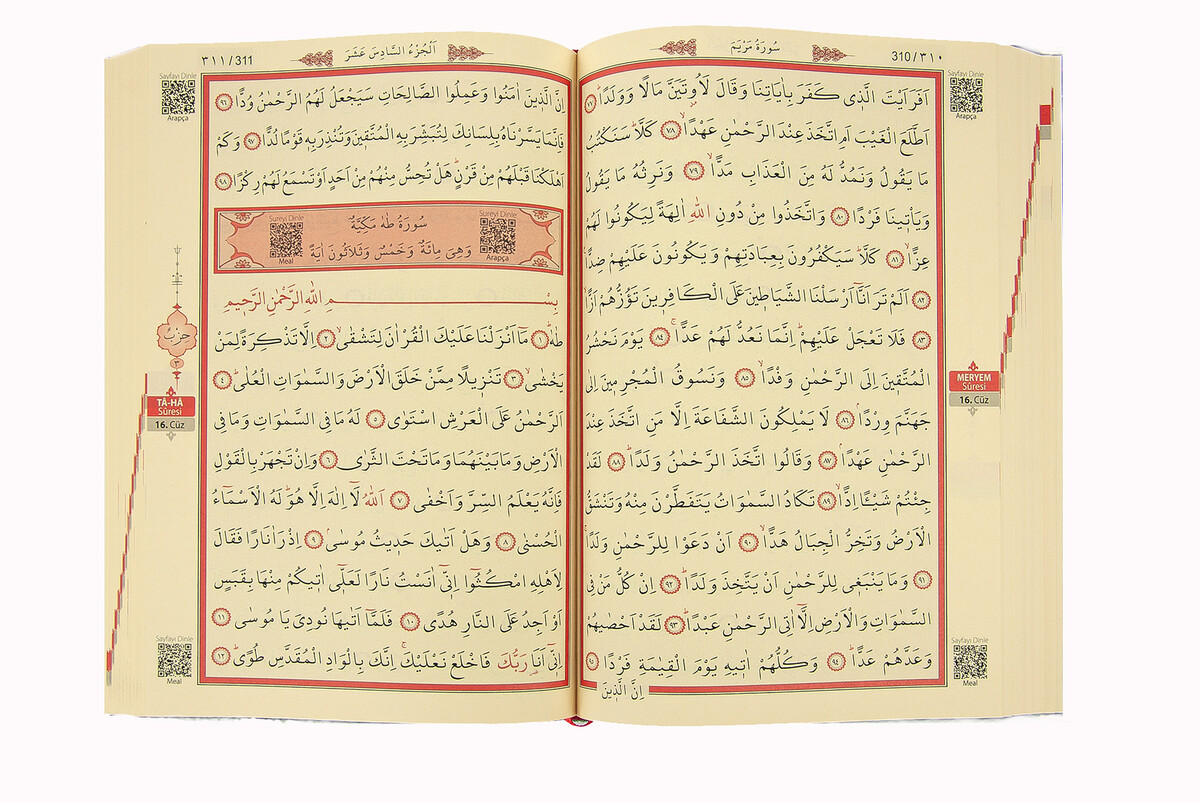 310/٣١٠
سُورَةُ مَرْيَمَ
Sayfayı Dinle
Arapça
اَفَرَاَيْتَ الَّذ۪ي كَفَرَ بِاٰيَاتِنَا وَقَالَ لَاُو۫تَيَنَّ مَالًا وَوَلَدًاۜ ﴿٧٧﴾
اَطَّلَعَ الْغَيْبَ اَمِ اتَّخَذَ عِنْدَ الرَّحْمٰنِ عَهْدًاۙ ﴿٧٨﴾ كَلَّاۜ سَنَكْتُبُ
مَا يَقُولُ وَنَمُدُّ لَهُ مِنَ الْعَذَابِ مَدًّاۙ ﴿٧٩﴾ وَنَرِثُهُ مَا يَقُولُ
وَيَأْت۪ينَا فَرْدًا ﴿٨٠﴾ وَاتَّخَذُوا مِنْ دُونِ اللّٰهِ اٰلِهَةً لِيَكُونُوا لَهُمْ
عِزًّاۙ ﴿٨١﴾ كَلَّاۜ سَيَكْفُرُونَ بِعِبَادَتِهِمْ وَيَكُونُونَ عَلَيْهِمْ ضِدًّا۟
﴿٨٢﴾ اَلَمْ تَرَ اَنَّٓا اَرْسَلْنَا الشَّيَاط۪ينَ عَلَى الْكَافِر۪ينَ تَؤُزُّهُمْ اَزًّاۙ
﴿٨٣﴾ فَلَا تَعْجَلْ عَلَيْهِمْۜ اِنَّمَا نَعُدُّ لَهُمْ عَدًّاۚ ﴿٨٤﴾ يَوْمَ نَحْشُرُ
الْمُتَّق۪ينَ اِلَى الرَّحْمٰنِ وَفْدًاۙ ﴿٨٥﴾ وَنَسُوقُ الْمُجْرِم۪ينَ اِلٰى
جَهَنَّمَ وِرْدًاۢ ﴿٨٦﴾ لَا يَمْلِكُونَ الشَّفَاعَةَ اِلَّا مَنِ اتَّخَذَ عِنْدَ
الرَّحْمٰنِ عَهْدًاۢ ﴿٨٧﴾ وَقَالُوا اتَّخَذَ الرَّحْمٰنُ وَلَدًاۜ ﴿٨٨﴾ لَقَدْ
جِئْتُمْ شَيْـًٔا اِدًّاۙ ﴿٨٩﴾ تَكَادُ السَّمٰوَاتُ يَتَفَطَّرْنَ مِنْهُ وَتَنْشَقُّ
الْاَرْضُ وَتَخِرُّ الْجِبَالُ هَدًّاۙ ﴿٩٠﴾ اَنْ دَعَوْا لِلرَّحْمٰنِ وَلَدًاۚ
﴿٩١﴾ وَمَا يَنْبَغ۪ي لِلرَّحْمٰنِ اَنْ يَتَّخِذَ وَلَدًاۜ ﴿٩٢﴾ اِنْ كُلُّ مَنْ فِي
السَّمٰوَاتِ وَالْاَرْضِ اِلَّٓا اٰتِي الرَّحْمٰنِ عَبْدًاۜ ﴿٩٣﴾ لَقَدْ اَحْصٰيهُمْ
وَعَدَّهُمْ عَدًّاۜ ﴿٩٤﴾ وَكُلُّهُمْ اٰت۪يهِ يَوْمَ الْقِيٰمَةِ فَرْدًا ﴿٩٥﴾
اِنَّ الَّذ۪ينَ
MERYEM
Sûresi
16. Cüz
Sayfayı Dinle
Meal
٣١١/311
اَلْجُزْءُ السَّادِسَ عَشَرَ
Sayfayı Dinle
Arapça
اِنَّ الَّذ۪ينَ اٰمَنُوا وَعَمِلُوا الصَّالِحَاتِ سَيَجْعَلُ لَهُمُ الرَّحْمٰنُ وُدًّا ﴿٩٦﴾
فَاِنَّمَا يَسَّرْنَاهُ بِلِسَانِكَ لِتُبَشِّرَ بِهِ الْمُتَّق۪ينَ وَتُنْذِرَ بِه۪ قَوْمًا لُدًّا ﴿٩٧﴾ وَكَمْ
اَهْلَكْنَا قَبْلَهُمْ مِنْ قَرْنٍۜ هَلْ تُحِسُّ مِنْهُمْ مِنْ اَحَدٍ اَوْ تَسْمَعُ لَهُمْ رِكْزًا ﴿٩٨﴾
Sureyi Dinle
Arapça
سُورَةُ طٰهٰ مَكِّيَّةٌ
وَهِيَ مِائَةٌ وَخَمْسٌ وَثَلَاثُونَ اٰيَةً
Sureyi Dinle
Meal
بِسْمِ اللّٰهِ الرَّحْمٰنِ الرَّح۪يمِ
طٰهٰۜ ﴿١﴾ مَٓا اَنْزَلْنَا عَلَيْكَ الْقُرْاٰنَ لِتَشْقٰىۙ ﴿٢﴾ اِلَّا تَذْكِرَةً لِمَنْ
يَخْشٰىۙ ﴿٣﴾ تَنْز۪يلًا مِمَّنْ خَلَقَ الْاَرْضَ وَالسَّمٰوَاتِ الْعُلٰىۜ ﴿٤﴾
اَلرَّحْمٰنُ عَلَى الْعَرْشِ اسْتَوٰى ﴿٥﴾ لَهُ مَا فِي السَّمٰوَاتِ وَمَا فِي
الْاَرْضِ وَمَا بَيْنَهُمَا وَمَا تَحْتَ الثَّرٰى ﴿٦﴾ وَاِنْ تَجْهَرْ بِالْقَوْلِ
فَاِنَّهُ يَعْلَمُ السِّرَّ وَاَخْفٰى ﴿٧﴾ اَللّٰهُ لَٓا اِلٰهَ اِلَّا هُوَۜ لَهُ الْاَسْمَٓاءُ
الْحُسْنٰى ﴿٨﴾ وَهَلْ اَتٰيكَ حَد۪يثُ مُوسٰىۢ ﴿٩﴾ اِذْ رَاٰ نَارًا فَقَالَ
لِاَهْلِهِ امْكُثُٓوا اِنّ۪ٓي اٰنَسْتُ نَارًا لَعَلّ۪ٓي اٰت۪يكُمْ مِنْهَا بِقَبَسٍ
اَوْ اَجِدُ عَلَى النَّارِ هُدًى ﴿١٠﴾ فَلَمَّٓا اَتٰيهَا نُودِيَ يَا مُوسٰى ﴿١١﴾
اِنّ۪ٓي اَنَا۬ رَبُّكَ فَاخْلَعْ نَعْلَيْكَۚ اِنَّكَ بِالْوَادِ الْمُقَدَّسِ طُوًىۜ ﴿١٢﴾
حِزْب
٣
TÂ-HÂ
Sûresi
16. Cüz
Sayfayı Dinle
Meal